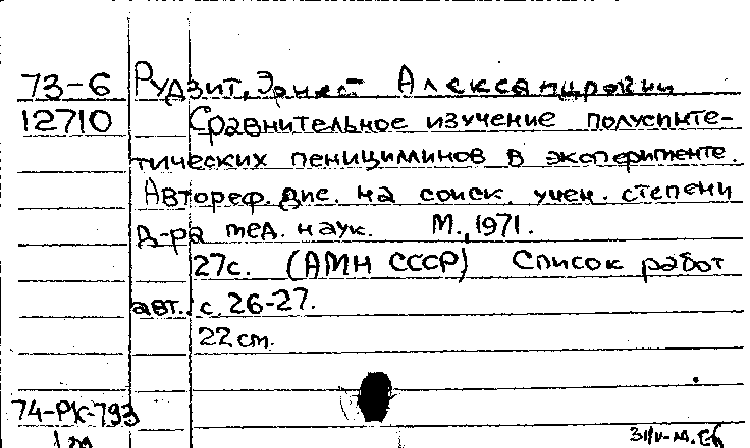 73-6 Рудзит, Эрнест Александрович
12710 Сравнительное изучение полусинте-
тических пенициллинов в эксперименте.
Автореф. дис. на соиск. учен. степени
д-ра мед. наук. М., 1971.
27с. (АМН СССР) Список работ
авт.: с. 26-27.
22 см.
74-РК-793